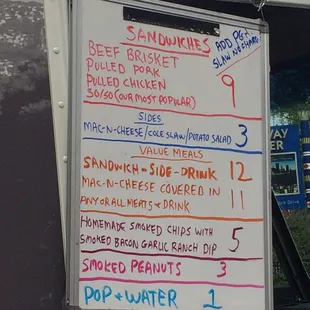 SANDWICHES
ADD PGH
SLAW NO CHARGE
BEEF BRISKET
PULLED PORK
PULLED CHICKEN
50/50 (OUR MOST POPULAR)
9
SIDES
MAC-N-CHEESE/COLE SLAW/POTATO SALAD 3
VALUE MEALS
SANDWICH-SIDE-DRINK 12
MAC-N-CHEESE COVERED IN
ANY OR ALL MEATS + DRINK 11
HOMEMADE SMOKED CHIPS WITH
SMOKED BACON GARLIC RANCH DIP 5
SMOKED PEANUTS 3
POP + WATER 1